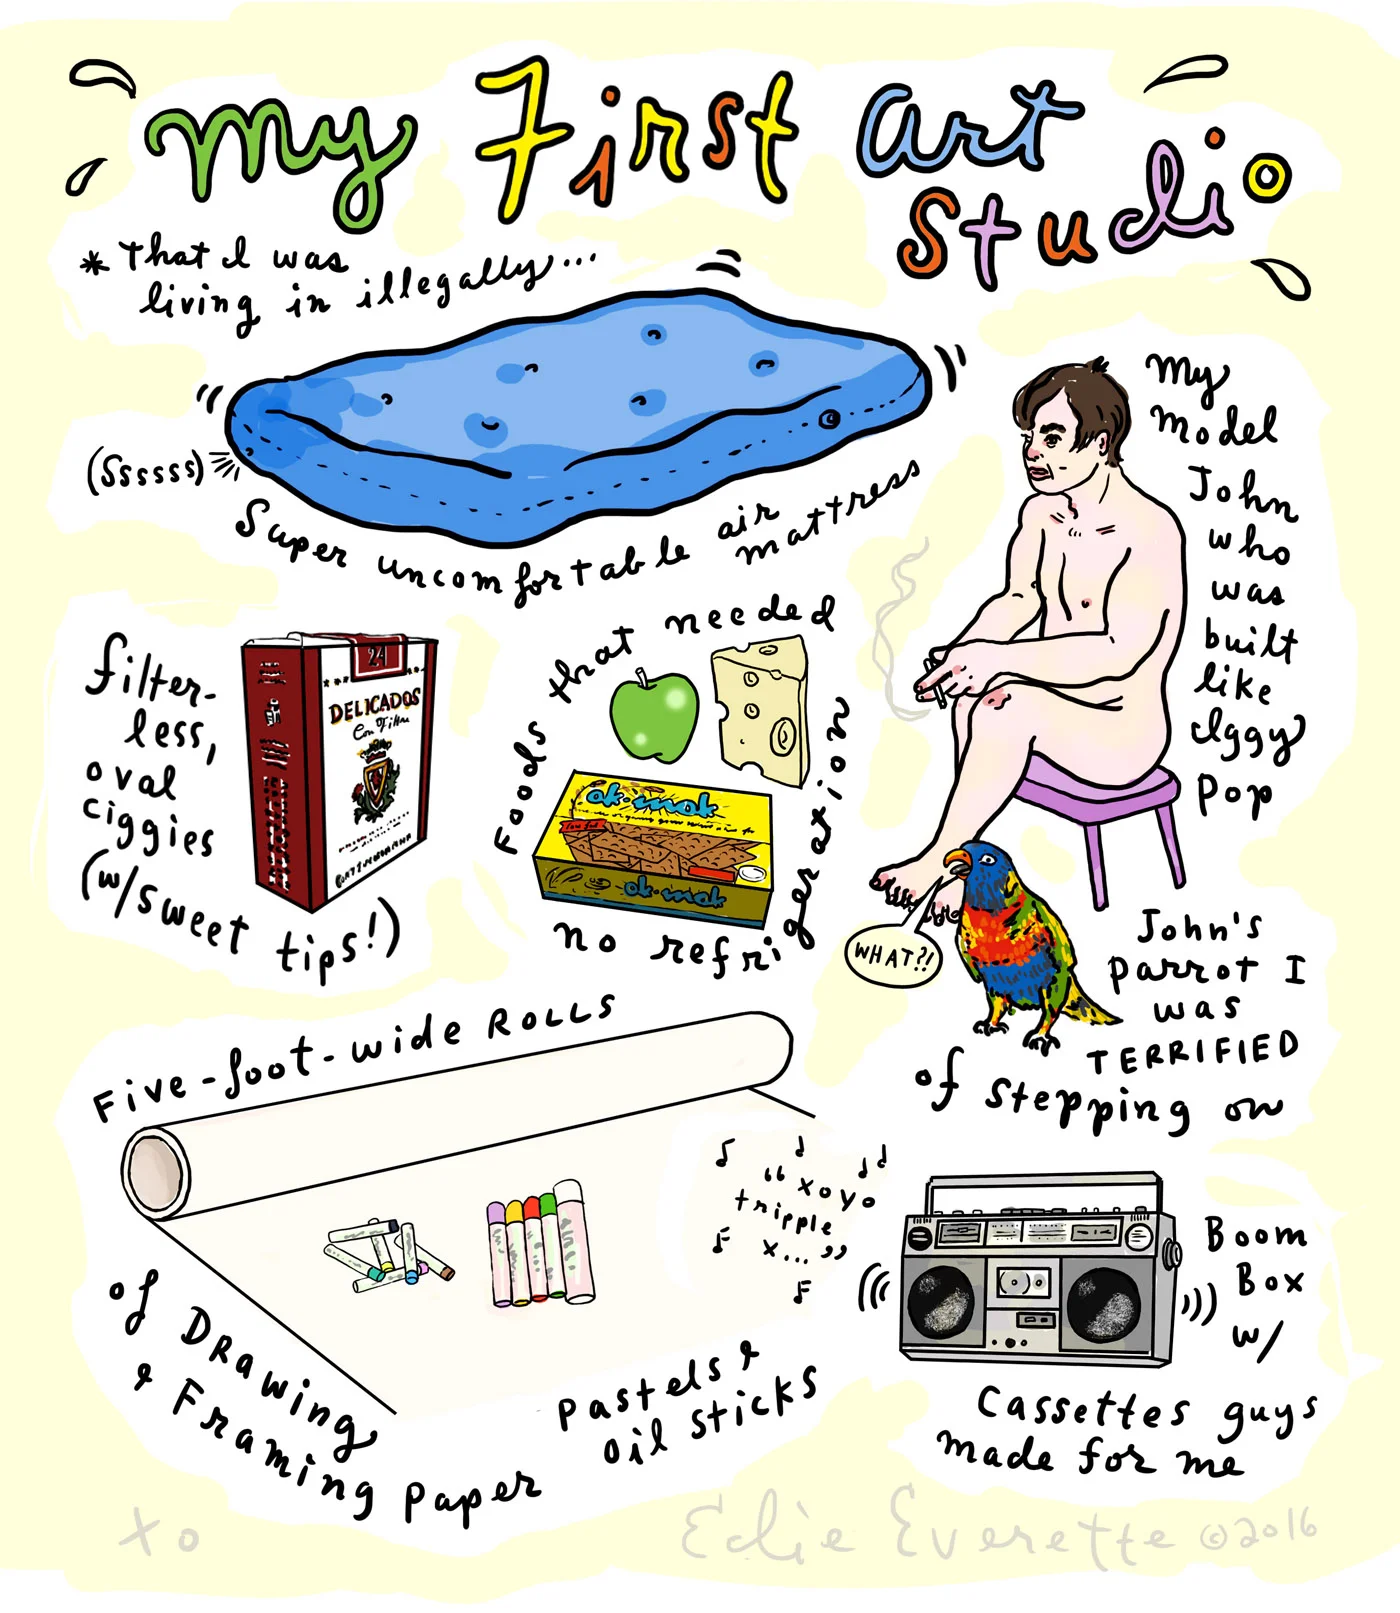 My First Art
Studio
* that I was
living in illegally...
(Ssssss)
Super uncomfortable air
mattress
My
Model
John
who
was
built
like
Iggy
Pop
filter-
less,
oval
ciggies
(w/sweet tips!)
24
DELICADOS
Con Filtro
Foods that needed
no refrigeration
ak-mak
ak-mak
WHAT?!
John's
parrot I
was
TERRIFIED
of stepping on
Five-foot-wide ROLLS
of Drawing
& Framing paper
Pastels &
oil sticks
"xoyo
tripple
x..."
Boom
Box
w/
Cassettes guys
made for me
xo
Edie Everette ©2016